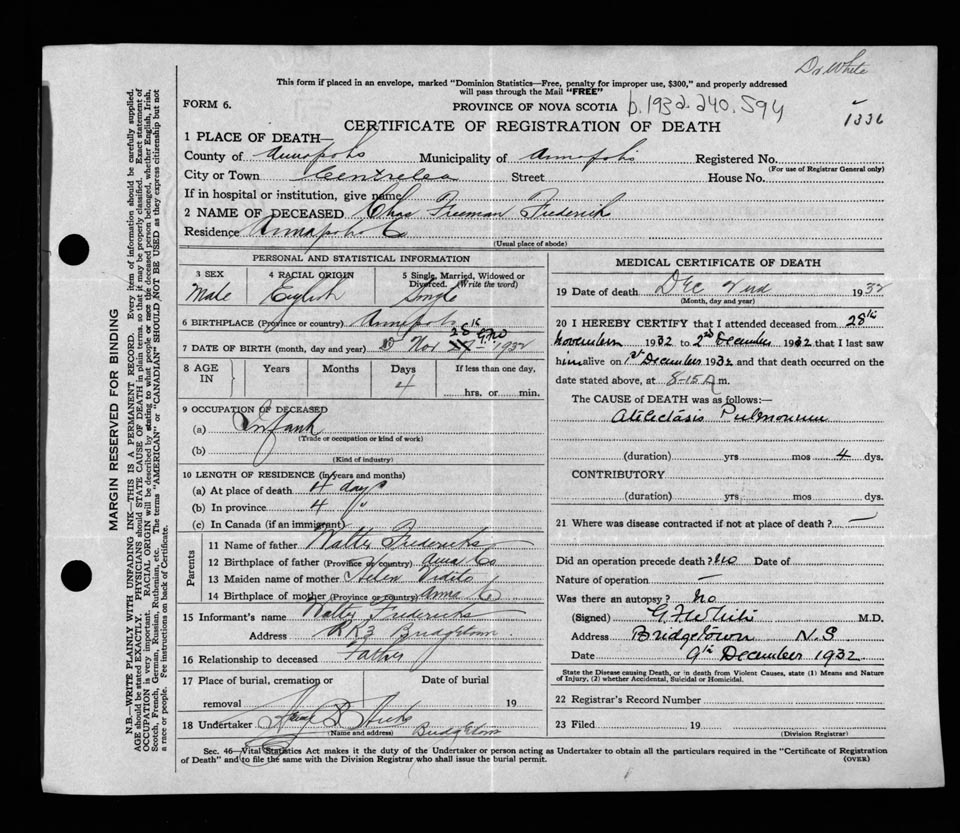 Dr White
This form if placed in an envelope, marked "Dominion Statistics—Free, penalty for improper use, $300," and properly addressed
will pass through the Mail "FREE"
FORM 6.
PROVINCE OF NOVA SCOTIA
b.1932.240.594
1336
CERTIFICATE OF REGISTRATION OF DEATH
1 PLACE OF DEATH—
County of Annapolis Municipality of Annapolis Registered No.
(For use of Registrar General only)
City or Town Centrelea Street House No.
If in hospital or institution, give name
2 NAME OF DECEASED Chas Freeman Frederick
Residence Annapolis Co
(Usual place of abode)
PERSONAL AND STATISTICAL INFORMATION
3 SEX 4 RACIAL ORIGIN 5 Single, Married, Widowed or Divorced. (Write the word)
Male English Single
6 BIRTHPLACE (Province or country) Annapolis
28th
7 DATE OF BIRTH (month, day and year) Nov 1932
8 AGE IN Years Months Days If less than one day,
4 hrs. or min.
9 OCCUPATION OF DECEASED
(a) Infant
(Trade or occupation or kind of work)
(b)
(Kind of industry)
10 LENGTH OF RESIDENCE (in years and months)
(a) At place of death 4 days
(b) In province 4 "
(c) In Canada (if an immigrant)
Parents
11 Name of father Walter Fredericks
12 Birthplace of father (Province or country) Anna Co
13 Maiden name of mother Helen Vidito
14 Birthplace of mother (Province or country) Anna Co
15 Informant's name Walter Fredericks
Address RR3 Bridgetown
16 Relationship to deceased Father
17 Place of burial, cremation or Date of burial
removal 19
18 Undertaker Hicks
(Name and address) Bridgetown
MEDICAL CERTIFICATE OF DEATH
19 Date of death Dec 2nd 1932
(Month, day and year)
20 I HEREBY CERTIFY that I attended deceased from 28th
November 1932 to 2nd December 1932 that I last saw
him alive on 1st December 1932 and that death occurred on the
date stated above, at 8-15 m.
The CAUSE OF DEATH was as follows:—
Atelectasis Pulmonum
(duration) yrs mos 4 dys.
CONTRIBUTORY
(duration) yrs mos dys.
21 Where was disease contracted if not at place of death? —
Did an operation precede death? No Date of
Nature of operation —
Was there an autopsy? No
(Signed) M.D.
Address Bridgetown N.S
Date 9th December 1932
State the Disease causing Death, or in death from Violent Causes, state (1) Means and Nature
of Injury, (2) whether Accidental, Suicidal or Homicidal.
22 Registrar's Record Number
23 Filed 19
(Division Registrar)
Sec. 46—Vital Statistics Act makes it the duty of the Undertaker or person acting as Undertaker to obtain all the particulars required in the "Certificate of Registration
of Death" and to file the same with the Division Registrar who shall issue the burial permit. (OVER)
MARGIN RESERVED FOR BINDING
N.B.—WRITE PLAINLY WITH UNFADING INK—THIS IS A PERMANENT RECORD. Every item of information should be carefully supplied.
AGE should be stated EXACTLY. PHYSICIANS should STATE CAUSE OF DEATH in plain terms, so that it may be properly classified. Exact statement of
OCCUPATION is very important. RACIAL ORIGIN will be described by stating to what people or race the deceased person belonged, whether English, Irish,
Scotch, French, German, Russian, Ruthenian, etc. The terms "AMERICAN" or "CANADIAN" SHOULD NOT BE USED as they express citizenship but not
a race or people. Fee instructions on back of Certificate.